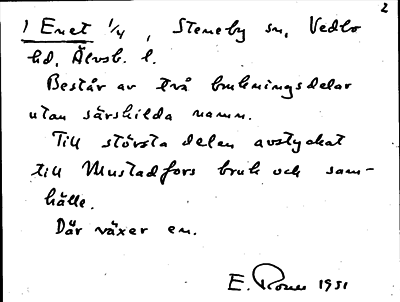 2
1 Enet 1/4, Steneby sn, Vedbo
hd, Älvsb. l.
Består av två brukningsdelar
utan särskilda namn.
Till största delen avstyckat
till Mustadfors bruk och sam-
hälle.
Där växer en.
E. 1931